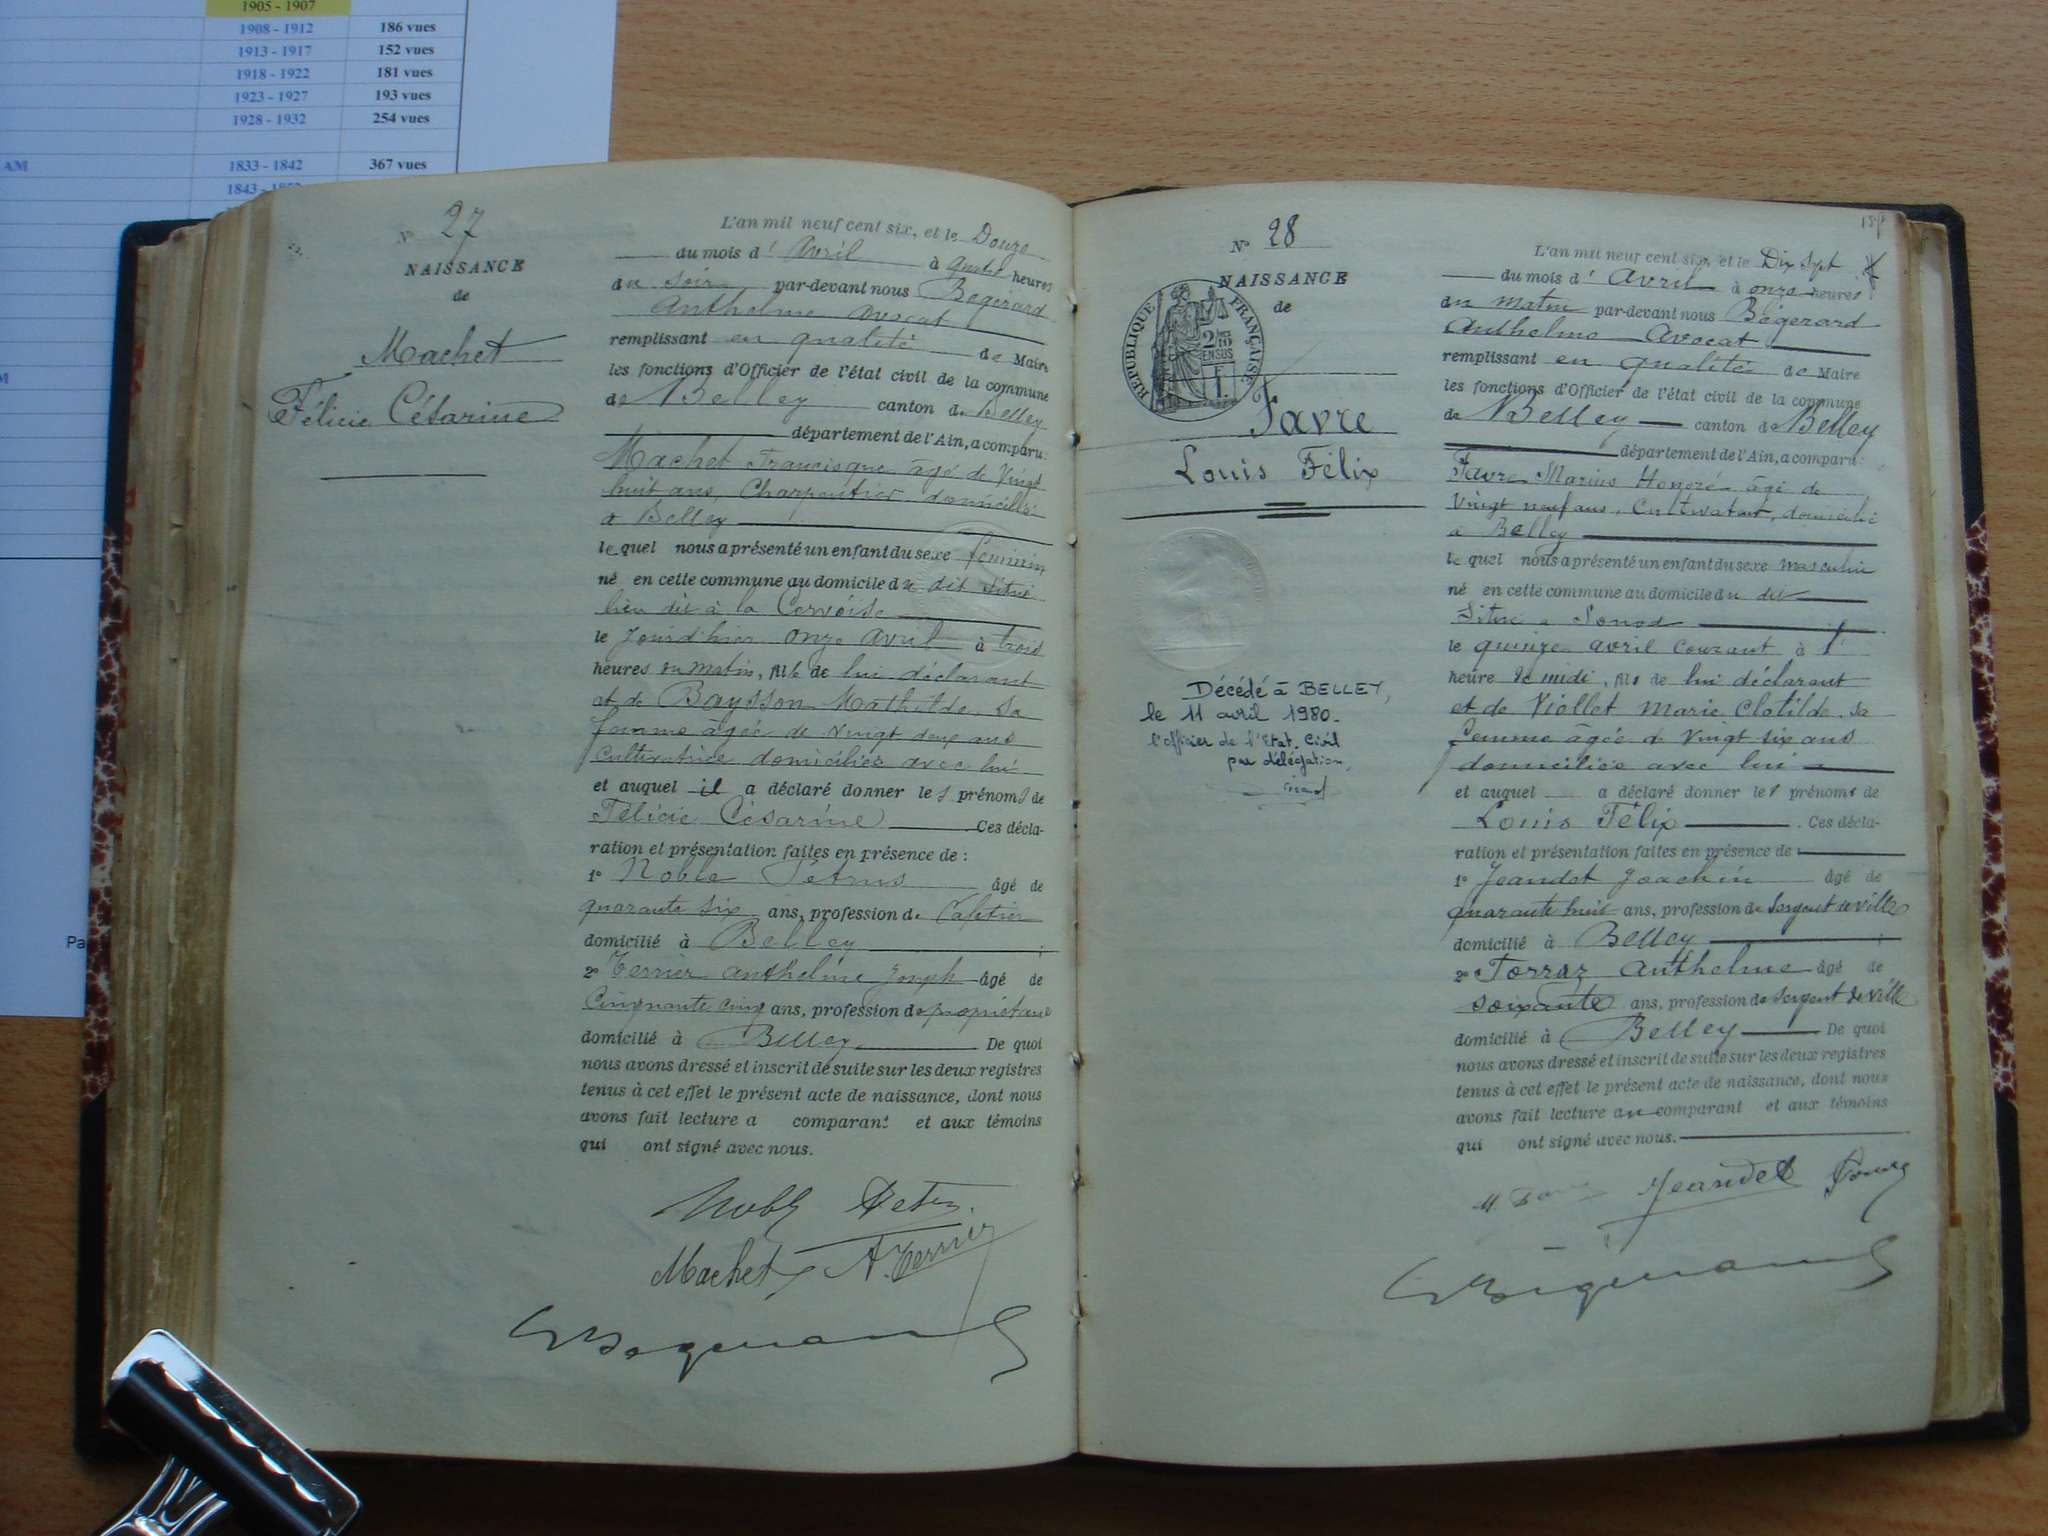 1905 - 1907
1908 - 1912 186 vues
1913 - 1917 152 vues
1918 - 1922 181 vues
1923 - 1927 193 vues
1928 - 1932 254 vues
AM 1833 - 1842 367 vues
1843 -
M
Pa
N° 27
NAISSANCE
de
Machet
Félicie Césarine
L'an mil neuf cent six, et le Douze
du mois d' Avril à quatre heures
du soir par-devant nous Bogerard
Anthelme avocat
remplissant en qualité de Maire
les fonctions d'Officier de l'état civil de la commune
de Belley canton de Belley
département de l'Ain, a comparu:
Machet Francisque âgé de Vingt
huit ans, Charpentier domicilié
à Belley
lequel nous a présenté un enfant du sexe féminin
né en cette commune au domicile du dit situé
lieu dit à la
le jourd'hier onze avril à trois
heures du matin, fille de lui déclarant
et de Baysson Mathilde sa
femme âgée de vingt deux ans
Cultivatrice domiciliée avec lui
et auquel il a déclaré donner les prénoms de
Félicie Césarine Ces décla-
ration et présentation faites en présence de :
1° Noble Pétrus âgé de
quarante six ans, profession de Cafetier
domicilié à Belley ;
2° Terrier Anthelme Joseph âgé de
Cinquante cinq ans, profession de propriétaire
domicilié à Belley De quoi
nous avons dressé et inscrit de suite sur les deux registres
tenus à cet effet le présent acte de naissance, dont nous
avons fait lecture a comparant et aux témoins
qui ont signé avec nous.
Machet A. Terrier
N° 28
NAISSANCE
de
REPUBLIQUE FRANÇAISE
2/10 EN SUS
1 F.
Favre
Louis Félix
Décédé à BELLEY,
le 11 avril 1980.
l'officier de l'Etat. Civil
par délégation,
L'an mil neuf cent six, et le Dix Sept
du mois d' Avril à onze heures
du matin par-devant nous Bogerard
Anthelme Avocat
remplissant en qualité de Maire
les fonctions d'Officier de l'état civil de la commune
de Belley canton de Belley
département de l'Ain, a comparu:
Favre Marius Honoré âgé de
Vingt neuf ans, Cultivateur, domicilié
à Belley
lequel nous a présenté un enfant du sexe masculin
né en cette commune au domicile du dit
Situé à Sonod
le quinze avril courant à 1
heure de midi, fils de lui déclarant
et de Viollet Marie Clotilde sa
femme âgée de vingt six ans
domiciliée avec lui
et auquel a déclaré donner les prénoms de
Louis Félix . Ces décla-
ration et présentation faites en présence de :
1° Jeandet Joachin âgé de
quarante huit ans, profession de Sergent de ville
domicilié à Belley ;
2° Forraz Anthelme âgé de
soixante ans, profession de Sergent de Ville
domicilié à Belley De quoi
nous avons dressé et inscrit de suite sur les deux registres
tenus à cet effet le présent acte de naissance, dont nous
avons fait lecture au comparant et aux témoins
qui ont signé avec nous.
Jeandet